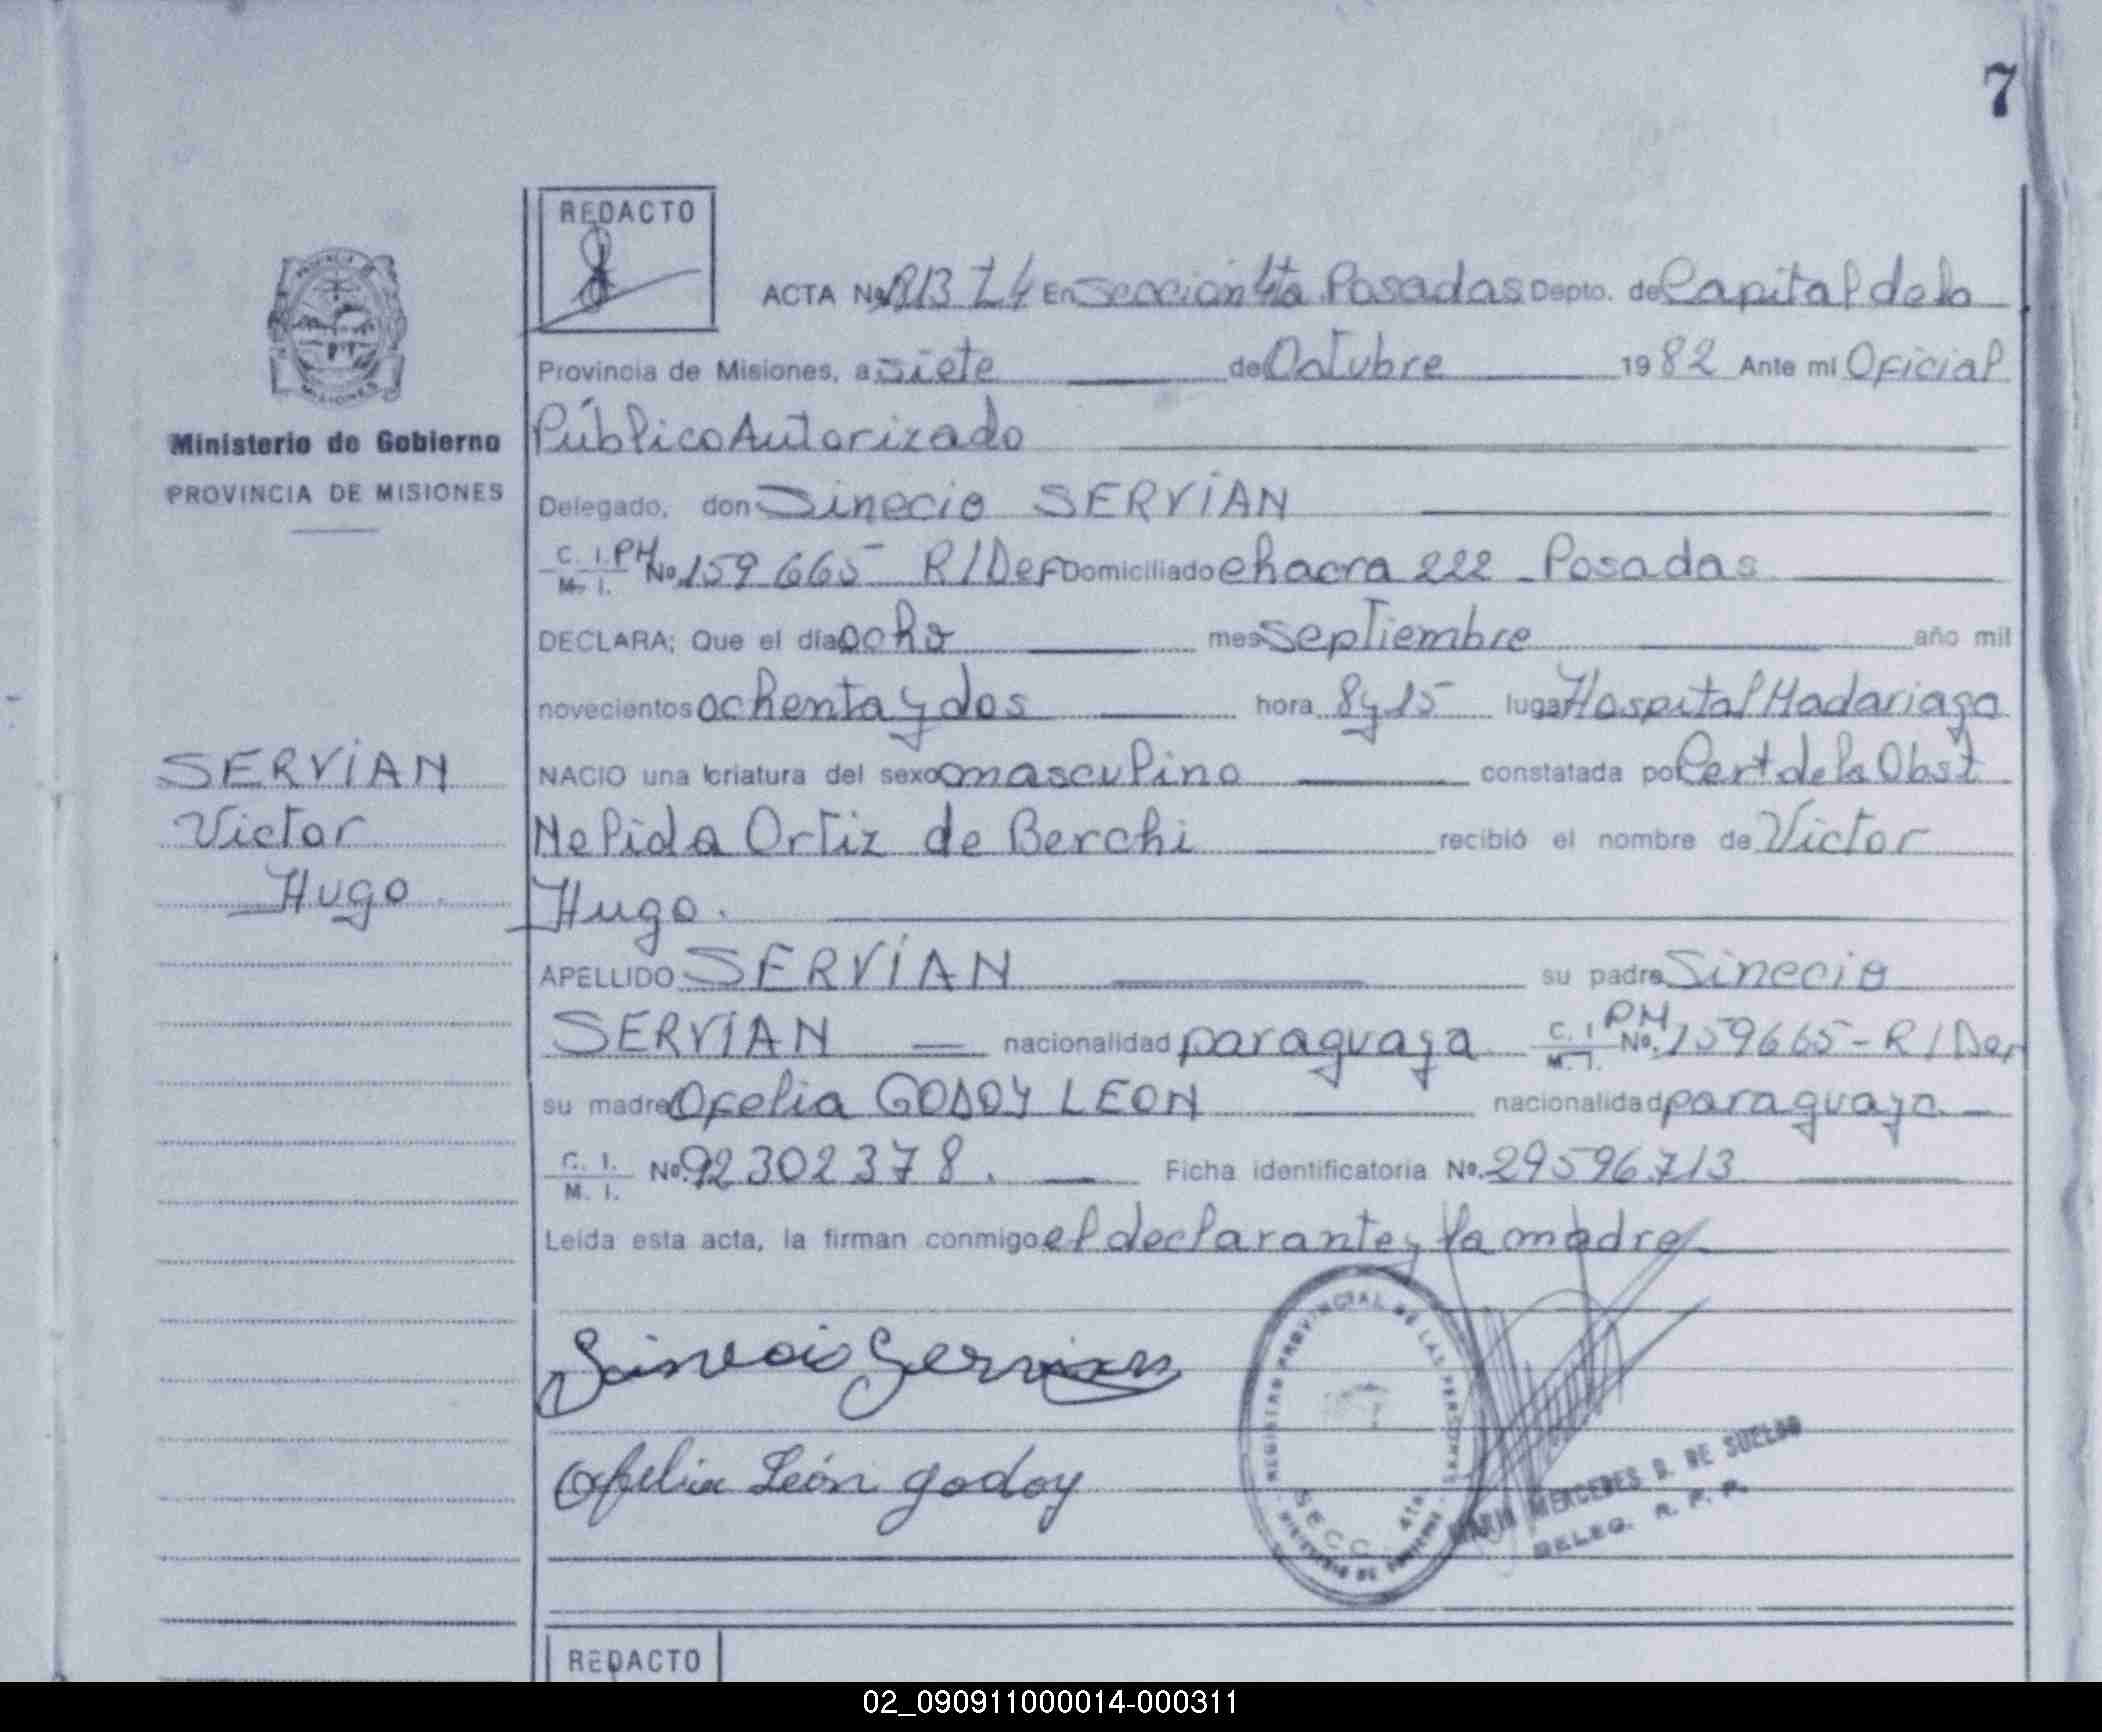 7
REDACTO
ACTA No En Sección 4ta Posadas Depto. de Capital de la
Provincia de Misiones, a siete de Octubre 1982 Ante mi Oficial
Público Autorizado
Ministerio de Gobierno
PROVINCIA DE MISIONES
Delegado, don Sinecio SERVIAN
C. I. PM No. 159665 R/Der Domiciliado chacra 222 - Posadas
M. I.
DECLARA; Que el día ocho mes septiembre año mil
novecientos ochenta y dos hora 8 y 15 lugar Hospital Madariaga
NACIO una criatura del sexo masculino constatada por Cert de la Obst
Nelida Ortiz de Berchi recibió el nombre de Victor
Hugo.
SERVIAN
Victor
Hugo.
APELLIDO SERVIAN su padre Sinecio
SERVIAN nacionalidad paraguaya C. I. PM No. 159665 - R/Der
M. I.
su madre Ofelia GODOY LEON nacionalidad paraguaya
C. I. No. 92302378. Ficha identificatoria No. 29596713
M. I.
Leída esta acta, la firman conmigo el declarante y la madre
Ofelia León godoy
REGISTRO PROVINCIAL DE LAS PERSONAS
SECC. 4ta
MERCEDES D. DE SUELDO
DELEG. R. P. P.
REDACTO
02_090911000014-000311